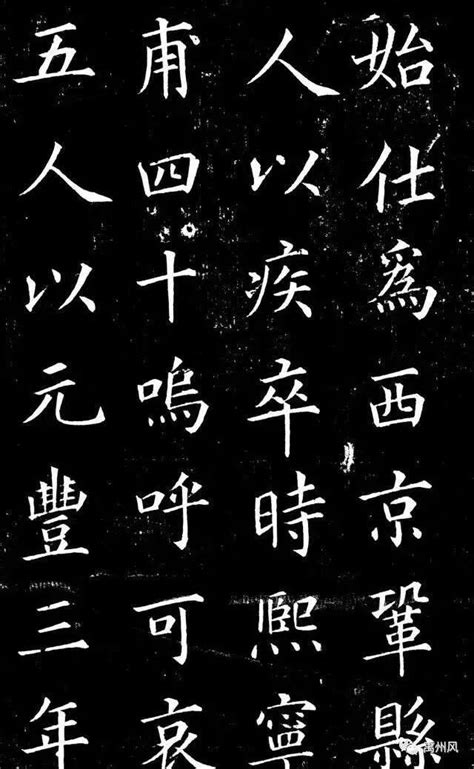 始仕爲西京鞏縣
人以疾卒時熙寧
甫四十嗚呼可哀
五人以元豐三年
禹州风